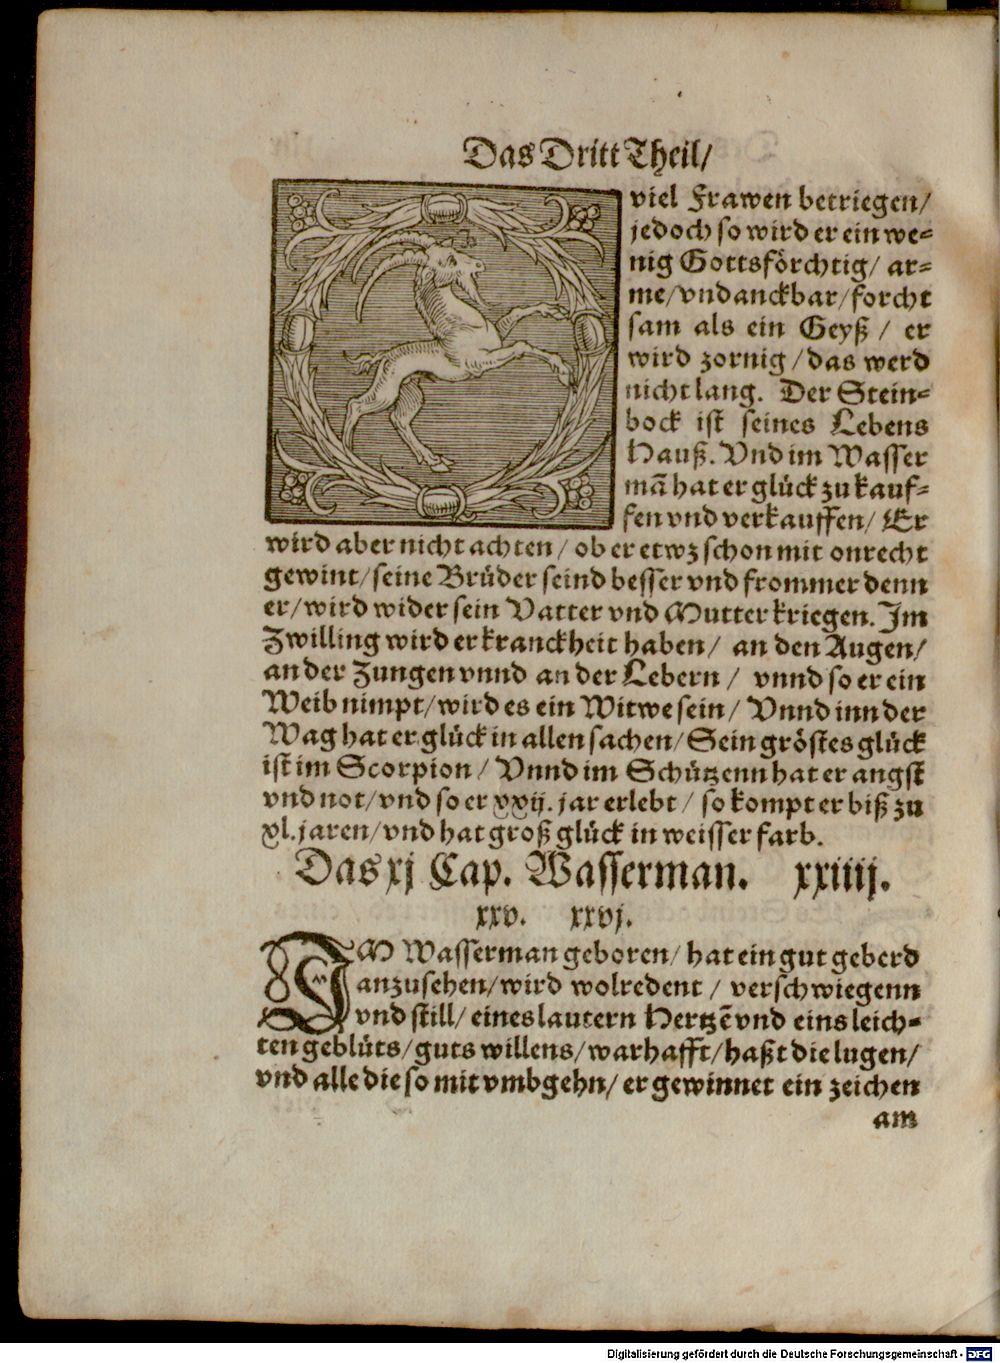 Das Dritt Theil/
viel Frawen betriegen/
jedoch so wird er ein we-
nig Gottsförchtig/ ar-
me/ vndanckbar/ forcht
sam als ein Geyß / er
wird zornig / das werd
nicht lang. Der Stein-
bock ist seines Lebens
Hauß. Vnd im Wasser
mā hat er glück zu kauf-
fen vnd verkauffen/ Er
wird aber nicht achten / ob er etwz schon mit onrecht
gewint/ seine Brüder seind besser vnd frommer denn
er/ wird wider sein Vatter vnd Mutter kriegen. Im
Zwilling wird er kranckheit haben/ an den Augen/
an der Zungen vnnd an der Lebern / vnnd so er ein
Weib nimpt/ wird es ein Witwe sein / Vnnd inn der
Wag hat er glück in allen sachen/ Sein gröstes glück
ist im Scorpion / Vnnd im Schützenn hat er angst
vnd not/ vnd so er xxij. jar erlebt / so kompt er biß zu
xl. jaren/ vnd hat groß glück in weisser farb.
Das xj Cap. Wasserman. xxiiij.
xxv. xxvj.
IM Wasserman geboren/ hat ein gut geberd
anzusehen/ wird wolredent / verschwiegenn
vnd still/ eines lautern Hertzē vnd eins leich-
ten geblüts/ guts willens/ warhafft/ haßt die lugen/
vnd alle die so mit vmbgehn/ er gewinnet ein zeichen
am
Digitalisierung gefördert durch die Deutsche Forschungsgemeinschaft - DFG